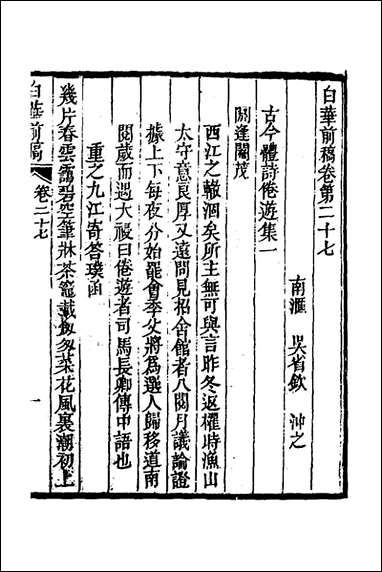 白華前稿卷第二十七
南滙　吳省欽　沖之
古今體詩倦遊集一
閼逢閹茂
西江之轍涸矣所主無可與言昨冬返櫂時漁山
太守意良厚又遠問見招舍館者八閱月議論證
據上下每夜分始罷會季父將爲選人歸移道南
閱歲而遇大祲曰倦遊者司馬長卿傳中語也
重之九江寄答璞函
幾片春雲霽碧空筆牀茶竈載怱怱菜花風裏潮初上
白華前稿
卷二十七
一